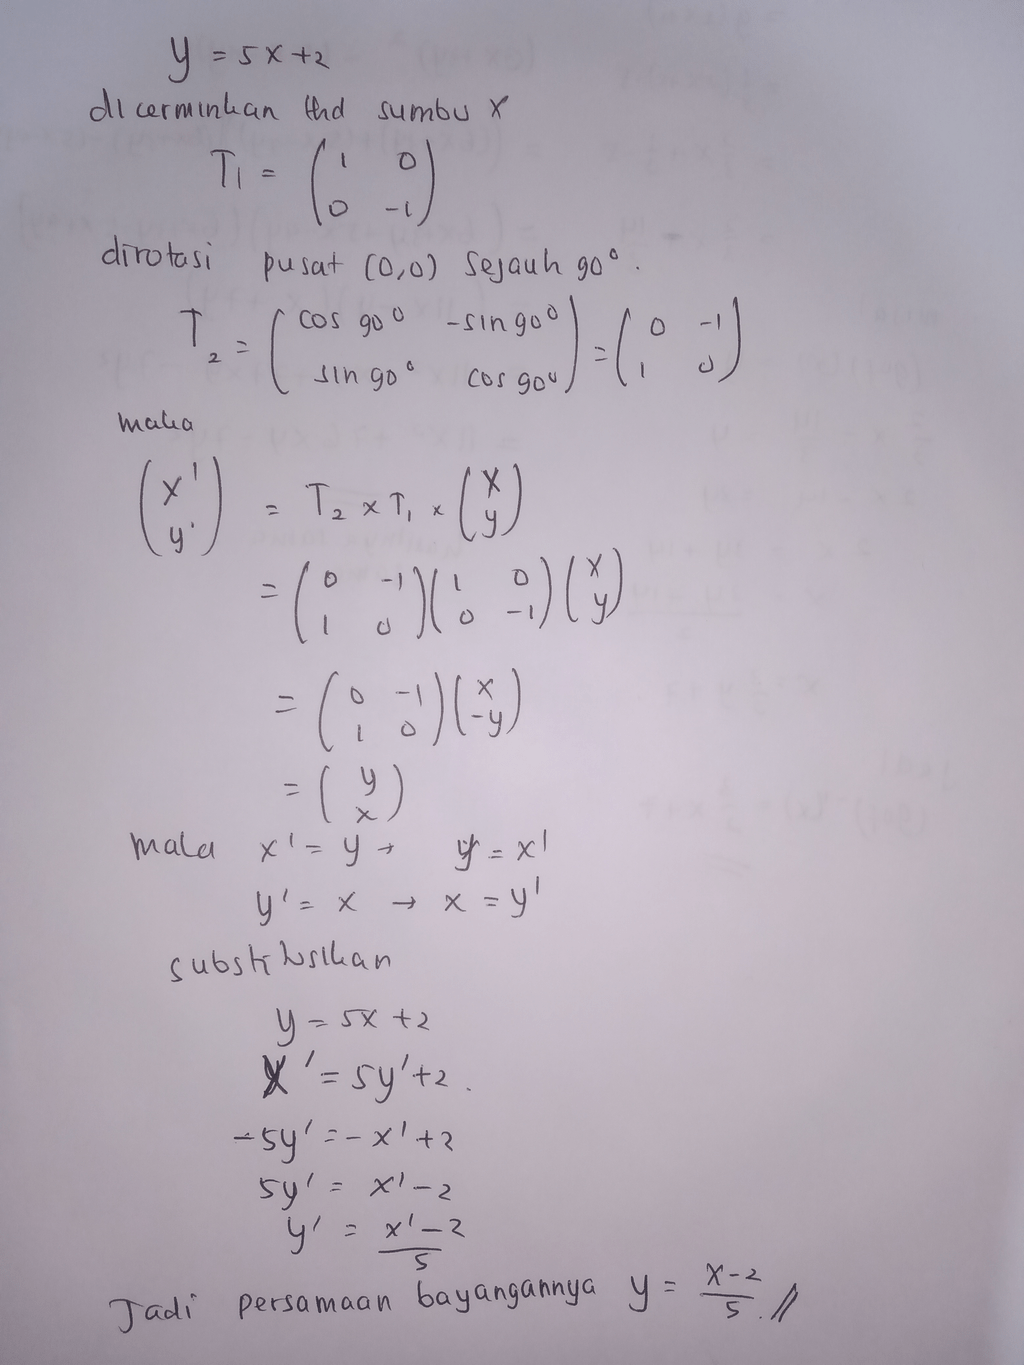 y = 5x+2
dicerminkan thd sumbu X
T1 = ( 1 0
0 -1 )
dirotasi pusat (0,0) sejauh 90°.
T2 = ( cos 90° -sin 90°
sin 90° cos 90° ) = ( 0 -1
1 0 )
maka
( x'
y' ) = T2 x T1 x ( x
y )
= ( 0 -1
1 0 ) ( 1 0
0 -1 ) ( x
y )
= ( 0 -1
1 0 ) ( x
-y )
= ( y
x )
maka x' = y → y = x'
y' = x → x = y'
substitusikan
y = 5x +2
x' = 5y'+2.
-5y' = -x'+2
5y' = x'-2
y' = x'-2
5
Jadi persamaan bayangannya y = x-2
5. //